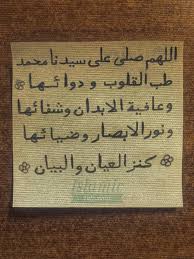 اللهم صلى على سيدنا محمد
طب القلوب ودوائها
وعافية الابدان وشفائها
ونور الابصار وضيائها
كنز العيان والبيان
Islamic